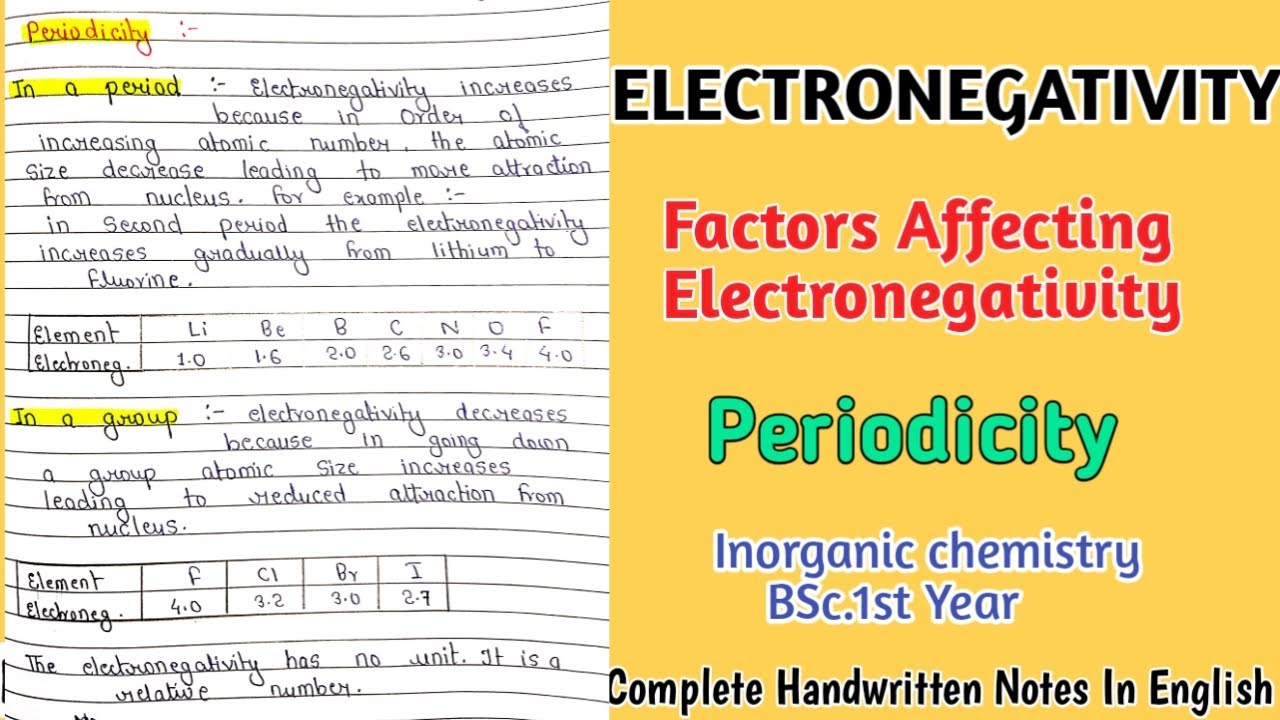 Periodicity :-
In a period :- Electronegativity increases
because in order of
increasing atomic number, the atomic
size decrease leading to more attraction
from nucleus. for example :-
in second period the electronegativity
increases gradually from lithium to
fluorine.
Element Li Be B C N O F
Electroneg. 1.0 1.6 2.0 2.6 3.0 3.4 4.0
In a group :- electronegativity decreases
because in going down
a group atomic size increases
leading to reduced attraction from
nucleus.
Element F Cl Br I
Electroneg. 4.0 3.2 3.0 2.7
The electronegativity has no unit. It is a
relative number.
ELECTRONEGATIVITY
Factors Affecting
Electronegativity
Periodicity
Inorganic chemistry
BSc.1st Year
Complete Handwritten Notes In English